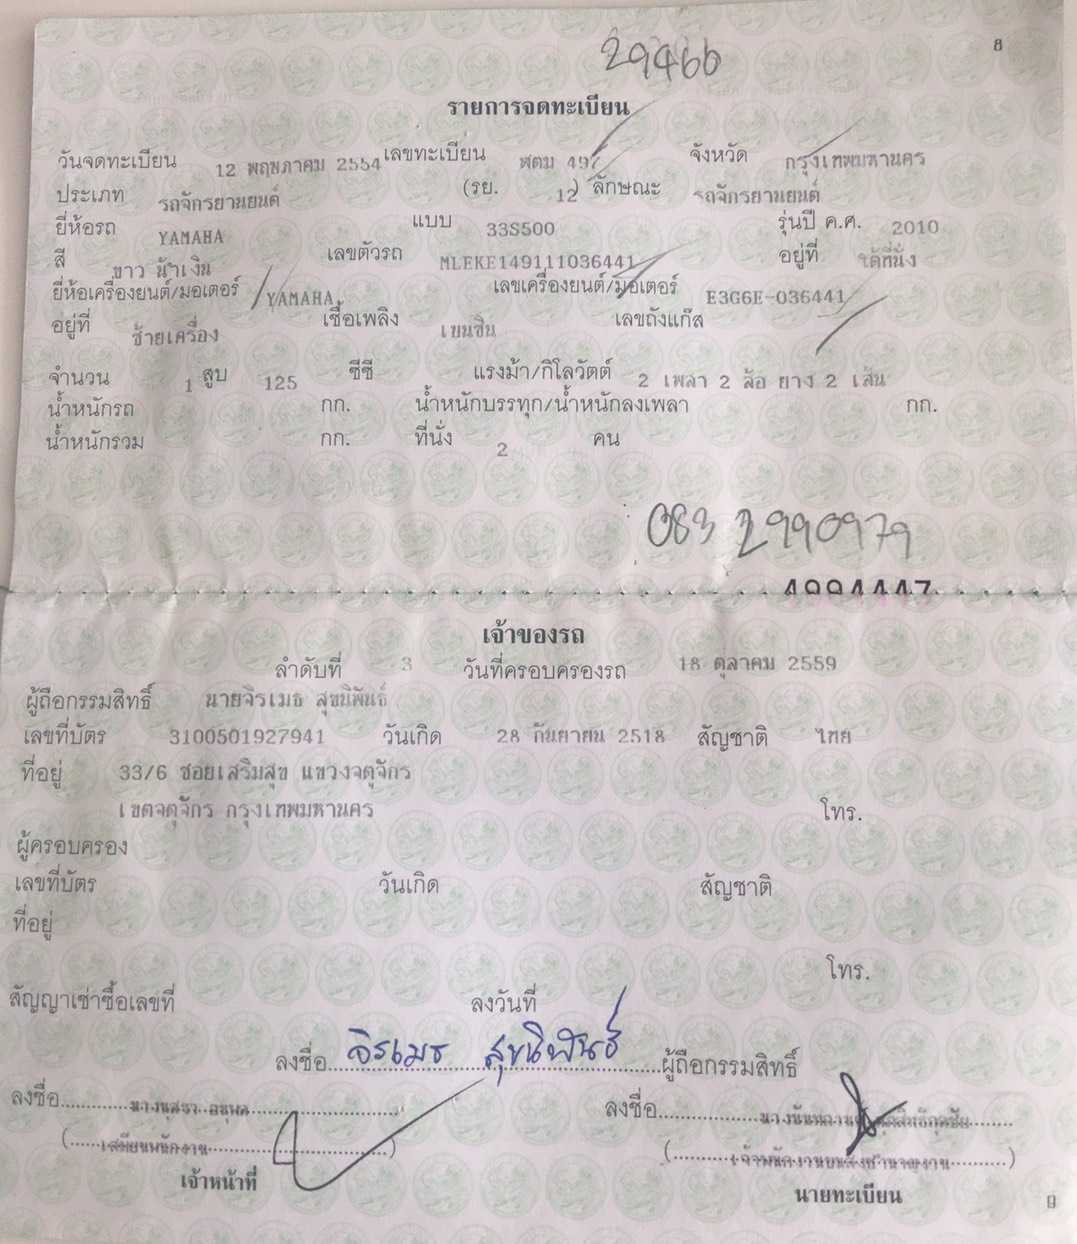 8
29466
รายการจดทะเบียน
วันจดทะเบียน 12 พฤษภาคม 2554 เลขทะเบียน ฬตม 497 จังหวัด กรุงเทพมหานคร
ประเภท รถจักรยานยนต์ (รย. 12) ลักษณะ รถจักรยานยนต์
ยี่ห้อรถ YAMAHA แบบ 33S500 รุ่นปี ค.ศ. 2010
สี ขาว น้ำเงิน เลขตัวรถ MLEKE149111036441 อยู่ที่ ใต้ที่นั่ง
ยี่ห้อเครื่องยนต์/มอเตอร์ YAMAHA เลขเครื่องยนต์/มอเตอร์ E3G6E-036441
อยู่ที่ ซ้ายเครื่อง เชื้อเพลิง เบนซิน เลขถังแก๊ส
จำนวน 1 สูบ 125 ซีซี แรงม้า/กิโลวัตต์ 2 เพลา 2 ล้อ ยาง 2 เส้น
น้ำหนักรถ กก. น้ำหนักบรรทุก/น้ำหนักลงเพลา กก.
น้ำหนักรวม กก. ที่นั่ง 2 คน
083 2990979
เจ้าของรถ
ลำดับที่ 3 วันที่ครอบครองรถ 18 ตุลาคม 2559
ผู้ถือกรรมสิทธิ์ นายจิรเมธ สุขนิพันธ์
เลขที่บัตร 3100501927941 วันเกิด 28 กันยายน 2518 สัญชาติ ไทย
ที่อยู่ 33/6 ซอยเสริมสุข แขวงจตุจักร
เขตจตุจักร กรุงเทพมหานคร โทร.
ผู้ครอบครอง
เลขที่บัตร วันเกิด สัญชาติ
ที่อยู่
โทร.
สัญญาเช่าซื้อเลขที่ ลงวันที่
ลงชื่อ จิรเมธ สุขนิพันธ์ ผู้ถือกรรมสิทธิ์
ลงชื่อ ลงชื่อ
(เสมียนพนักงาน) (เจ้าพนักงานขนส่งชำนาญงาน)
เจ้าหน้าที่ นายทะเบียน